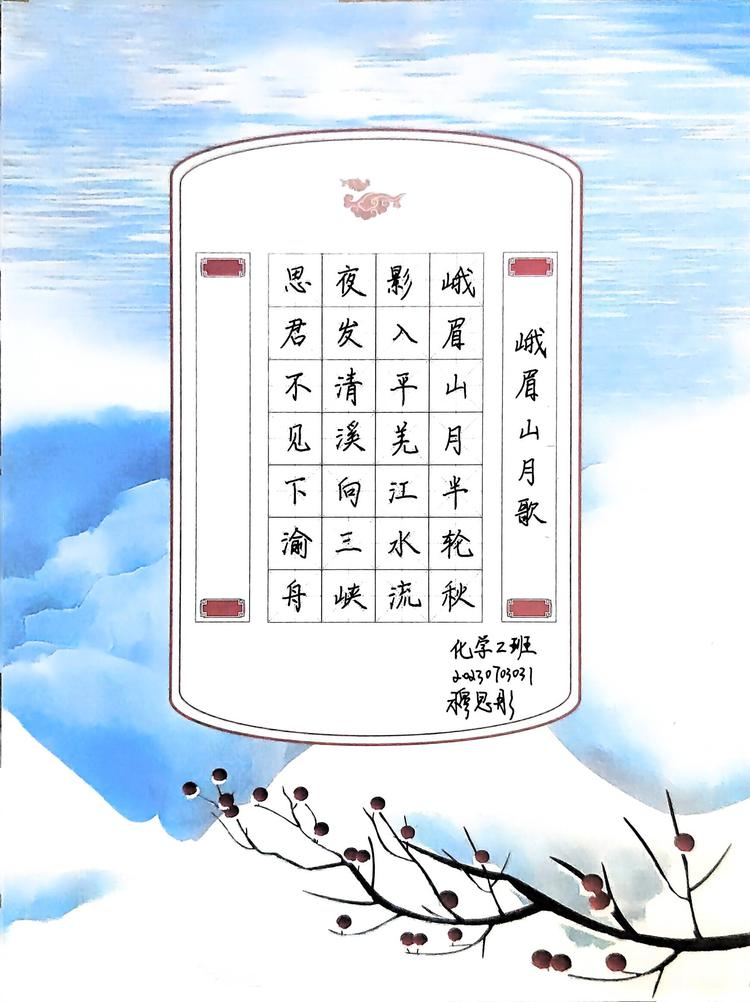 峨眉山月歌
峨眉山月半轮秋
影入平羌江水流
夜发清溪向三峡
思君不见下渝舟
化学2班
20230703031
穆思彤